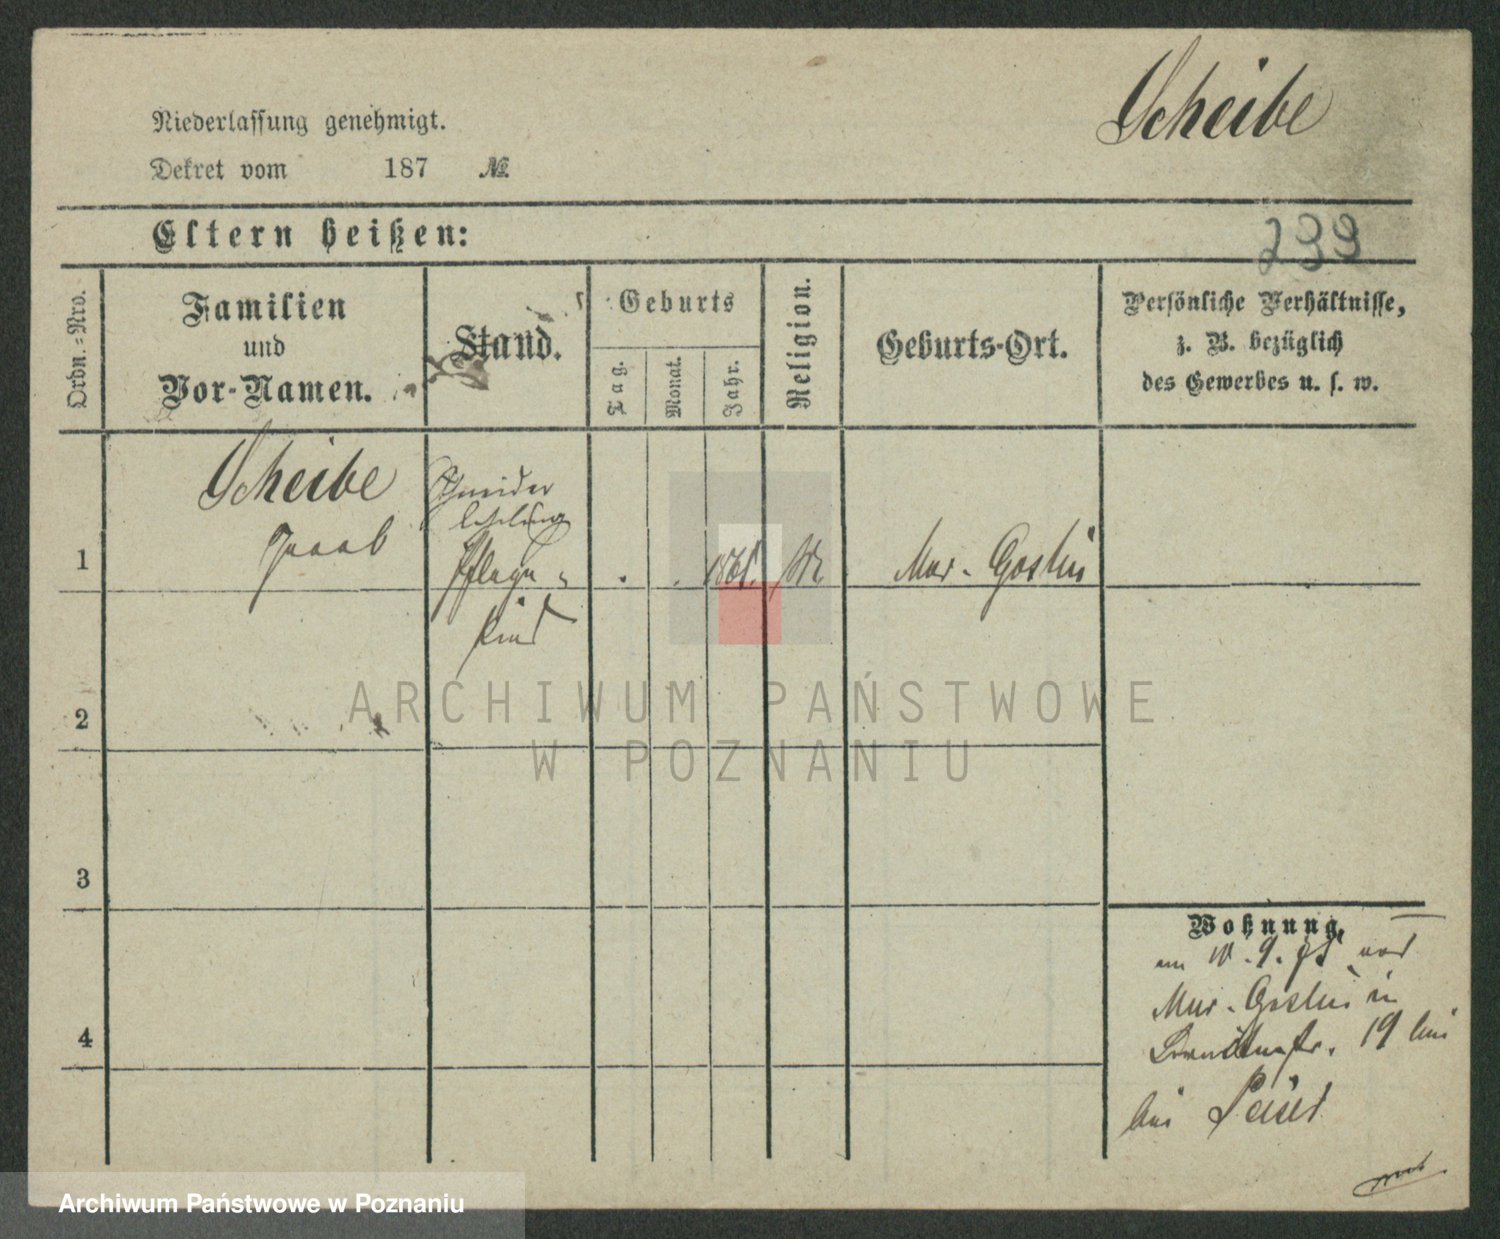 Scheibe
Niederlassung genehmigt.
Dekret vom 187 №
Eltern heißen:
239
Ordn.=Nro.
Familien
und
Vor-Namen.
Stand.
Geburts
Tag.
Monat.
Jahr.
Religion.
Geburts-Ort.
Persönliche Verhältnisse,
z. B. bezüglich
des Gewerbes u. s. w.
1
Scheibe
Jacob
Schneider
lehrling
Pflege-
kind
Mur. Goslin
2
3
4
Wohnung,
Mur. Goslin in
19 bei
bei Peiser
ARCHIWUM PAŃSTWOWE
W POZNANIU
Archiwum Państwowe w Poznaniu